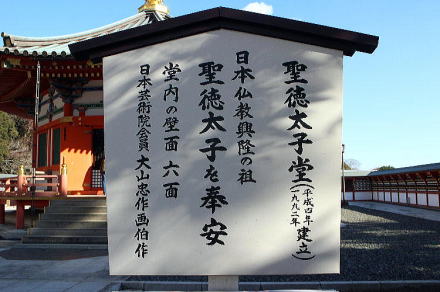 聖徳太子堂(平成四年建立)
(一九九二年)
日本仏教興隆の祖
聖徳太子を奉安
堂内の壁面 六面
日本芸術院会員 大山忠作画伯作